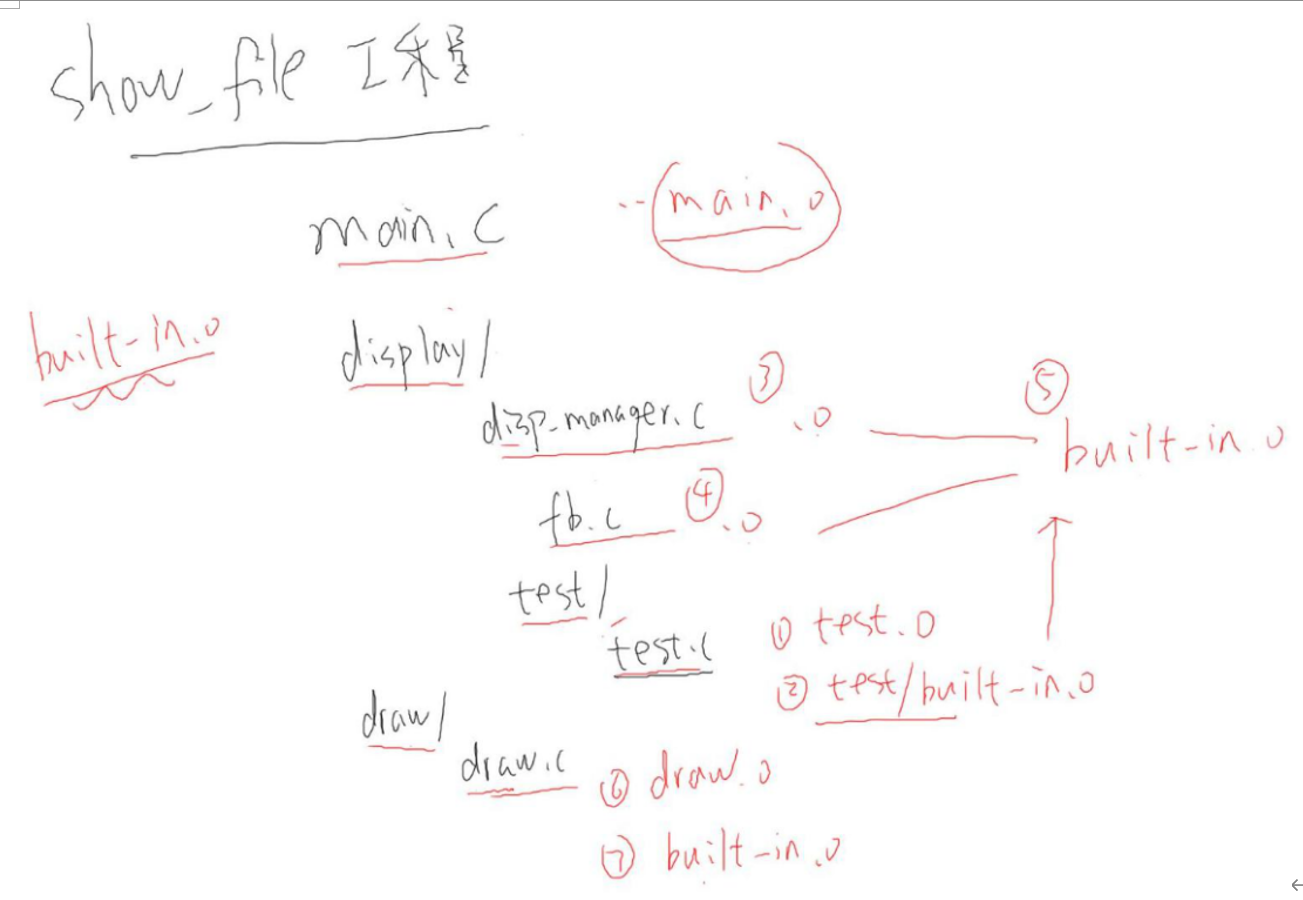 show_file 工程
main.c ..(main.o
built-in.o display/
disp_manager.c ③ .o ⑤ built-in.o
fb.c ④ .o
test/
test.c ① test.o
② test/built-in.o
draw/
draw.c ⑥ draw.o
⑦ built-in.o